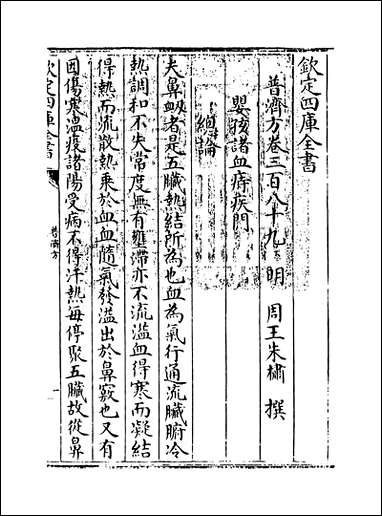 欽定四庫全書
普濟方卷三百八十九 明 周王朱橚 撰
嬰孩諸血痔疾門
總論
夫鼻衂者是五臟熱結所為也血為氣行通流臟腑冷
熱調和不失常度無有壅滯亦不流溢血得寒而凝結
得熱而流散熱乗於血血隨氣發溢出於鼻竅也又有
因傷寒温疫諸陽受病不得汗熱毎停聚五臟故從鼻
欽定四庫全書
普濟方
一